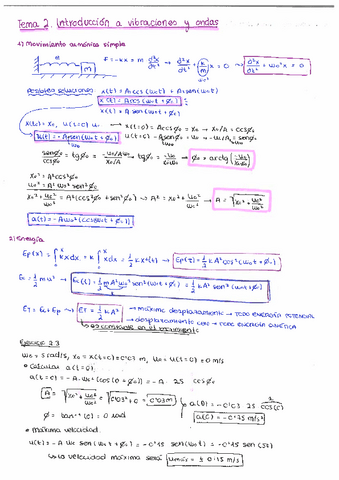 Tema 2. Introducción a vibraciones y ondas
1) Movimiento armónico simple
F = -kx = m d²x/dt² → d²x/dt² + k/m x = 0 → d²x/dt² + ω₀²x = 0
m
Posibles soluciones
x(t) = A cos(ω₀t) + A sen(ω₀t)
x(t) = A cos(ω₀t + ϕ₀)
x(t) = A sen(ω₀t + ϕ₀)
x(t=0) = A cosϕ₀ = x₀ → x₀/A = cosϕ₀
senϕ₀/cosϕ₀ = tgϕ₀ = → tgϕ₀ = → ϕ₀ = arctg
x₀² = A²cos²ϕ₀
u₀² = A²ω₀² sen²ϕ₀
x₀² + u₀²/ω₀² = A²(cos²ϕ₀ + sen²ϕ₀) → A² = x₀² + u₀²/ω₀² → A = √(x₀² + u₀²/ω₀²)
a(t) = -Aω₀²(cos(ω₀t + ϕ₀))
2) Energía
Ep(x) = ∫₀ˣ kx dx = k ∫₀ˣ x dx = 1/2 kx²(t) → Ep(t) = 1/2 kA² cos²(ω₀t + ϕ₀)
Ec = 1/2 mu² → Ec(t) = 1/2 mA²ω₀² sen²(ω₀t + ϕ₀) = 1/2 kA² sen²(ω₀t + ϕ₀)
ET = Ec + Ep → ET = 1/2 kA² → máximo desplazamiento → toda energía potencial
→ desplazamiento cero → toda energía cinética
→ es constante en el movimiento
Ejercicio 2.3
ω₀ = 5 rad/s, x₀ = x(t=0) = 0'03 m, u₀ = u(t=0) = 0 m/s
• Calcular a(t=0)
a(t=0) = -A·ω₀²(cos(0+ϕ₀)) = -A · 25 cosϕ₀
A = √(x₀² + u₀²/ω₀²) = √(0'03² + 0) = 0'03 m
ϕ = tan⁻¹(0) = 0 rad
a(0) = -0'03 · 25 cos(0)
a(0) = -0'75 m/s²
• Máxima velocidad
u(t) = -A ω₀ sen(ω₀t + ϕ₀) = -0'15 sen(ω₀t) = -0'15 sen(5t)
la velocidad máxima será: umáx = ± 0'15 m/s